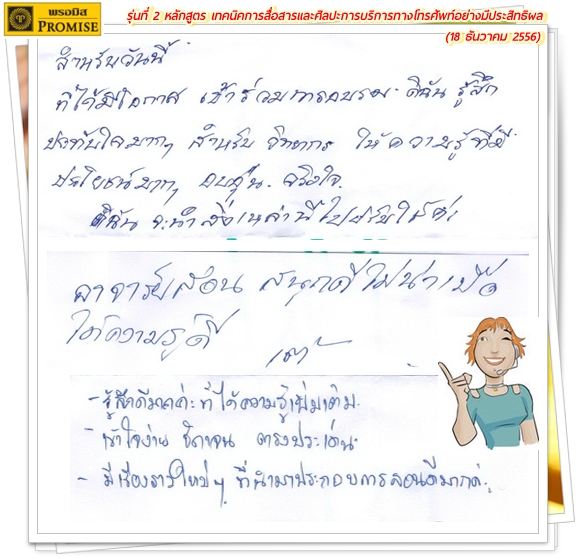 พรอมิส
PROMISE
รุ่นที่ 2 หลักสูตร เทคนิคการสื่อสารและศิลปะการบริการทางโทรศัพท์อย่างมีประสิทธิผล
(18 ธันวาคม 2556)
สำหรับวันนี้
ที่ได้มีโอกาส เข้าร่วมการอบรม ดิฉัน รู้สึก
ประทับใจมากๆ สำหรับ วิทยากร ให้ความรู้ที่มี
ประโยชน์มากๆ ขอบคุณ จริงใจ
ดิฉัน จะนำสิ่งเหล่านี้ไปปรับใช้ค่ะ
อาจารย์สอน สนุกดีไม่น่าเบื่อ
ให้ความรู้ดี
- รู้สึกดีมากค่ะ ที่ได้ความรู้เพิ่มเติม
- เข้าใจง่าย ชัดเจน ตรงประเด็น
- มีเรื่องราวใหม่ๆ ที่นำมาประกอบการสอนดีมากค่ะ